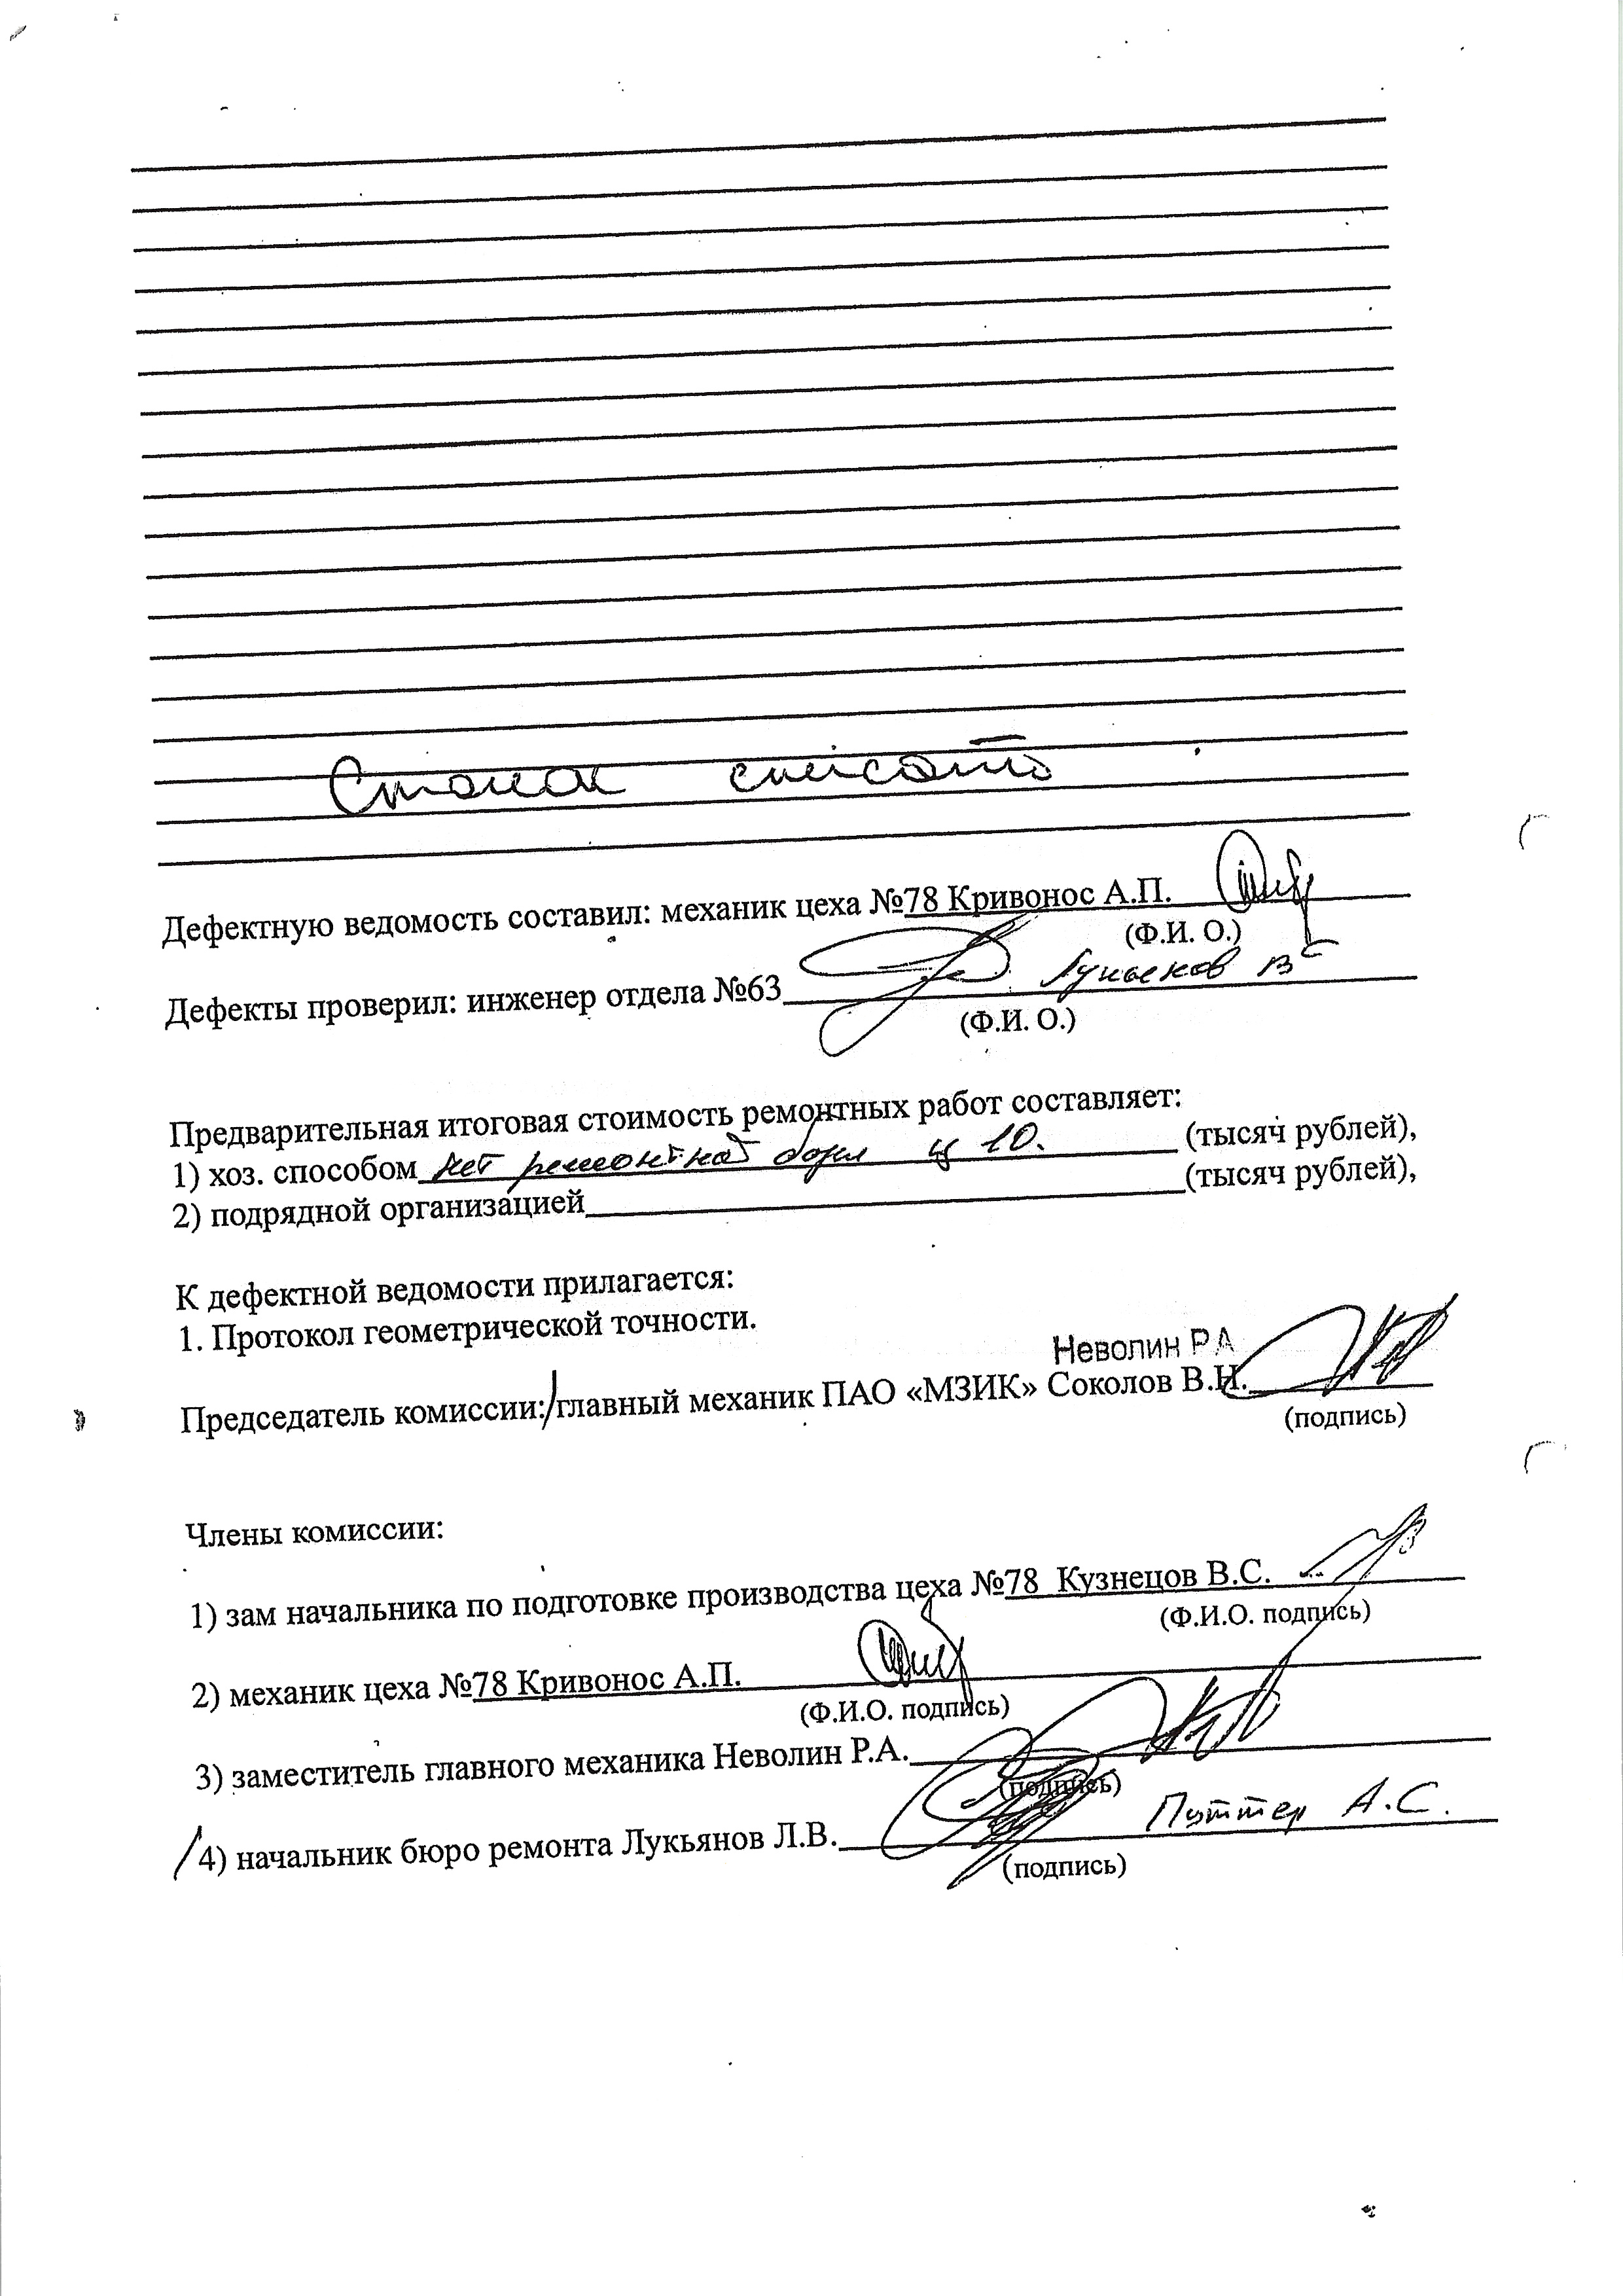 Станок списать
Дефектную ведомость составил: механик цеха №78 Кривонос А.П.
(Ф.И. О.)
Дефекты проверил: инженер отдела №63
(Ф.И. О.)
Предварительная итоговая стоимость ремонтных работ составляет:
1) хоз. способом нет ремонтной ц 10. (тысяч рублей),
2) подрядной организацией (тысяч рублей),
К дефектной ведомости прилагается:
1. Протокол геометрической точности.
Неволин Р.А
Председатель комиссии:/главный механик ПАО «МЗИК» Соколов В.Н.
(подпись)
Члены комиссии:
1) зам начальника по подготовке производства цеха №78 Кузнецов В.С.
(Ф.И.О. подпись)
2) механик цеха №78 Кривонос А.П.
(Ф.И.О. подпись)
3) заместитель главного механика Неволин Р.А.
(подпись)
/4) начальник бюро ремонта Лукьянов Л.В. Поттер А.С.
(подпись)